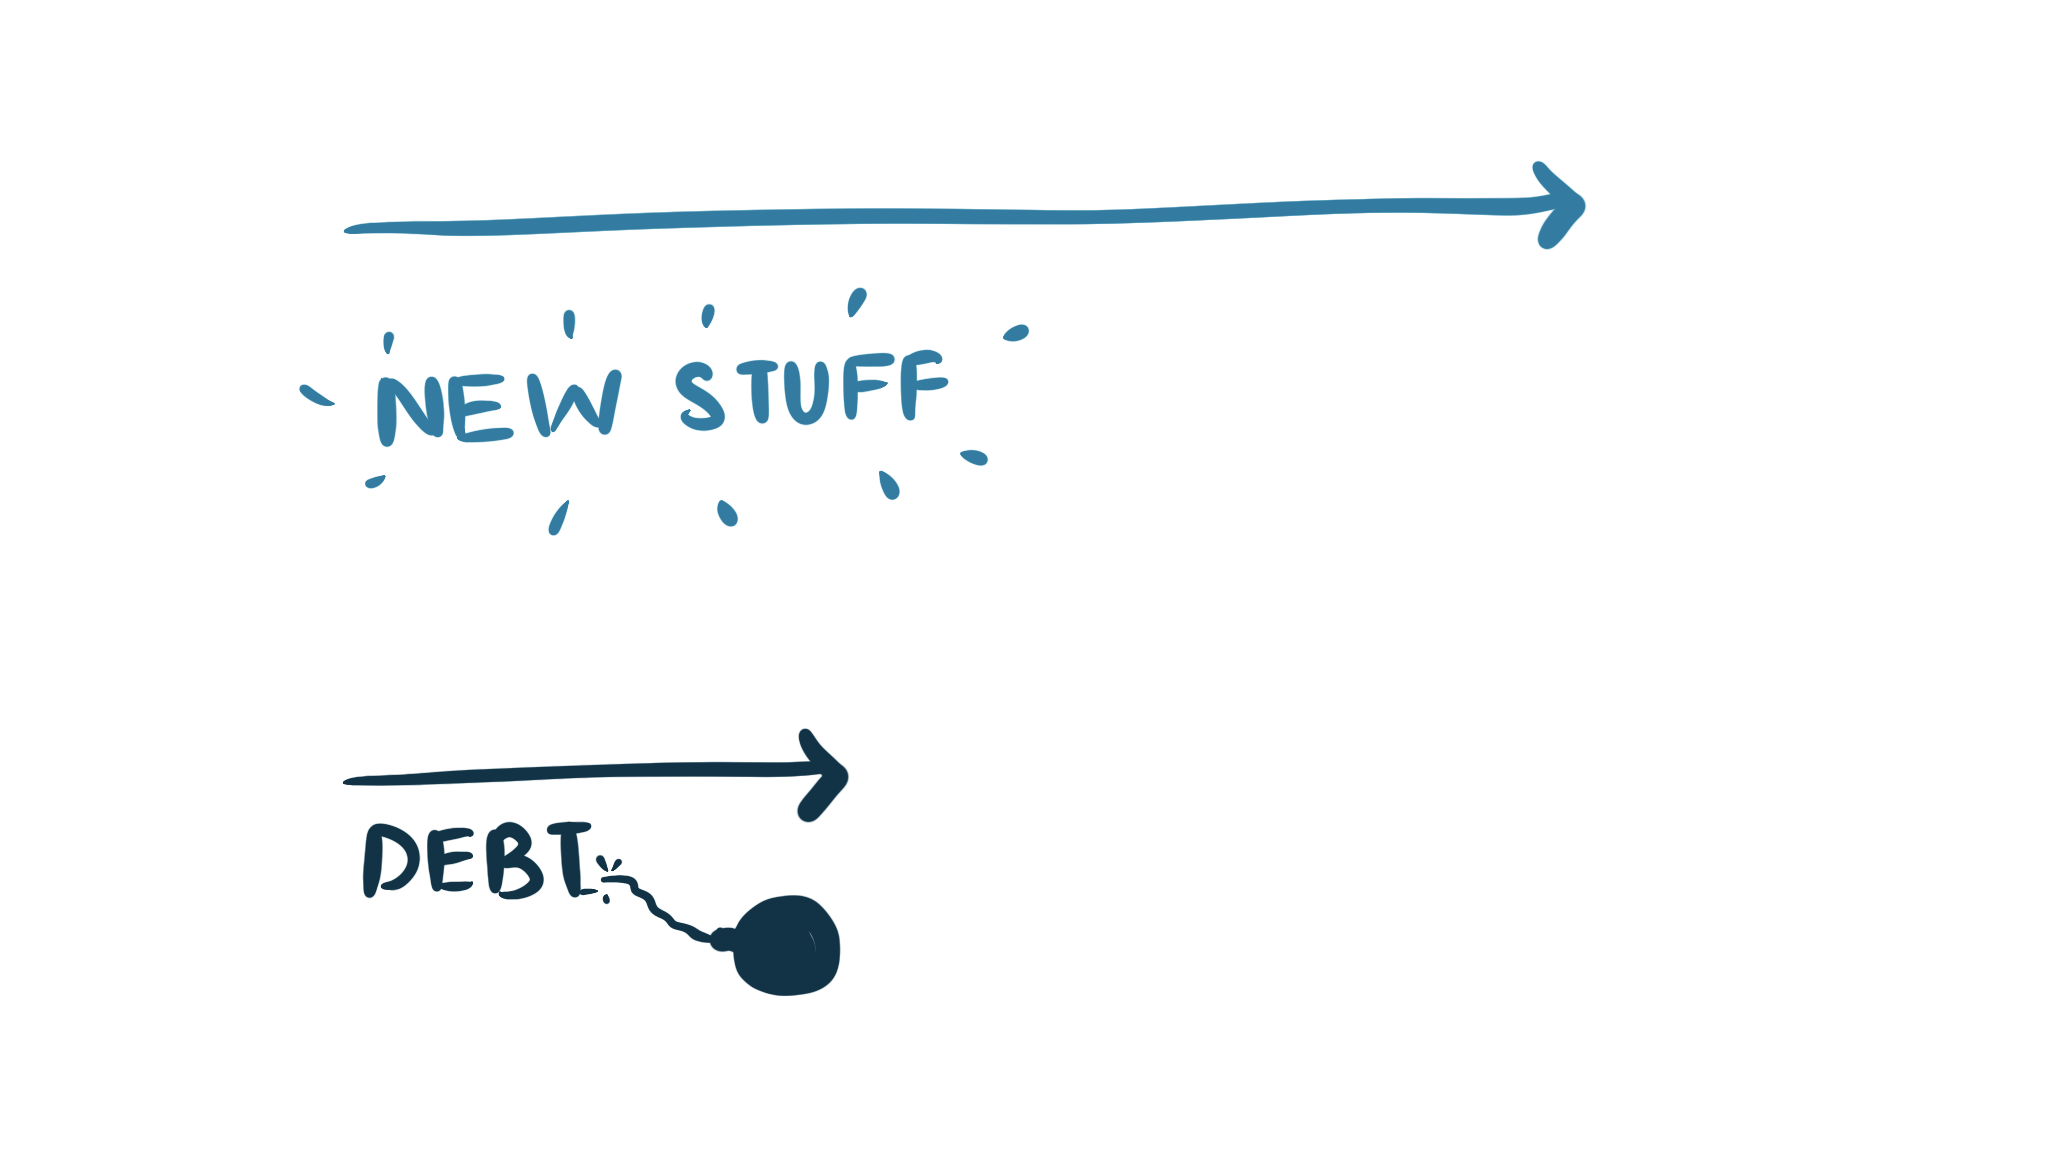 NEW STUFF
DEBT